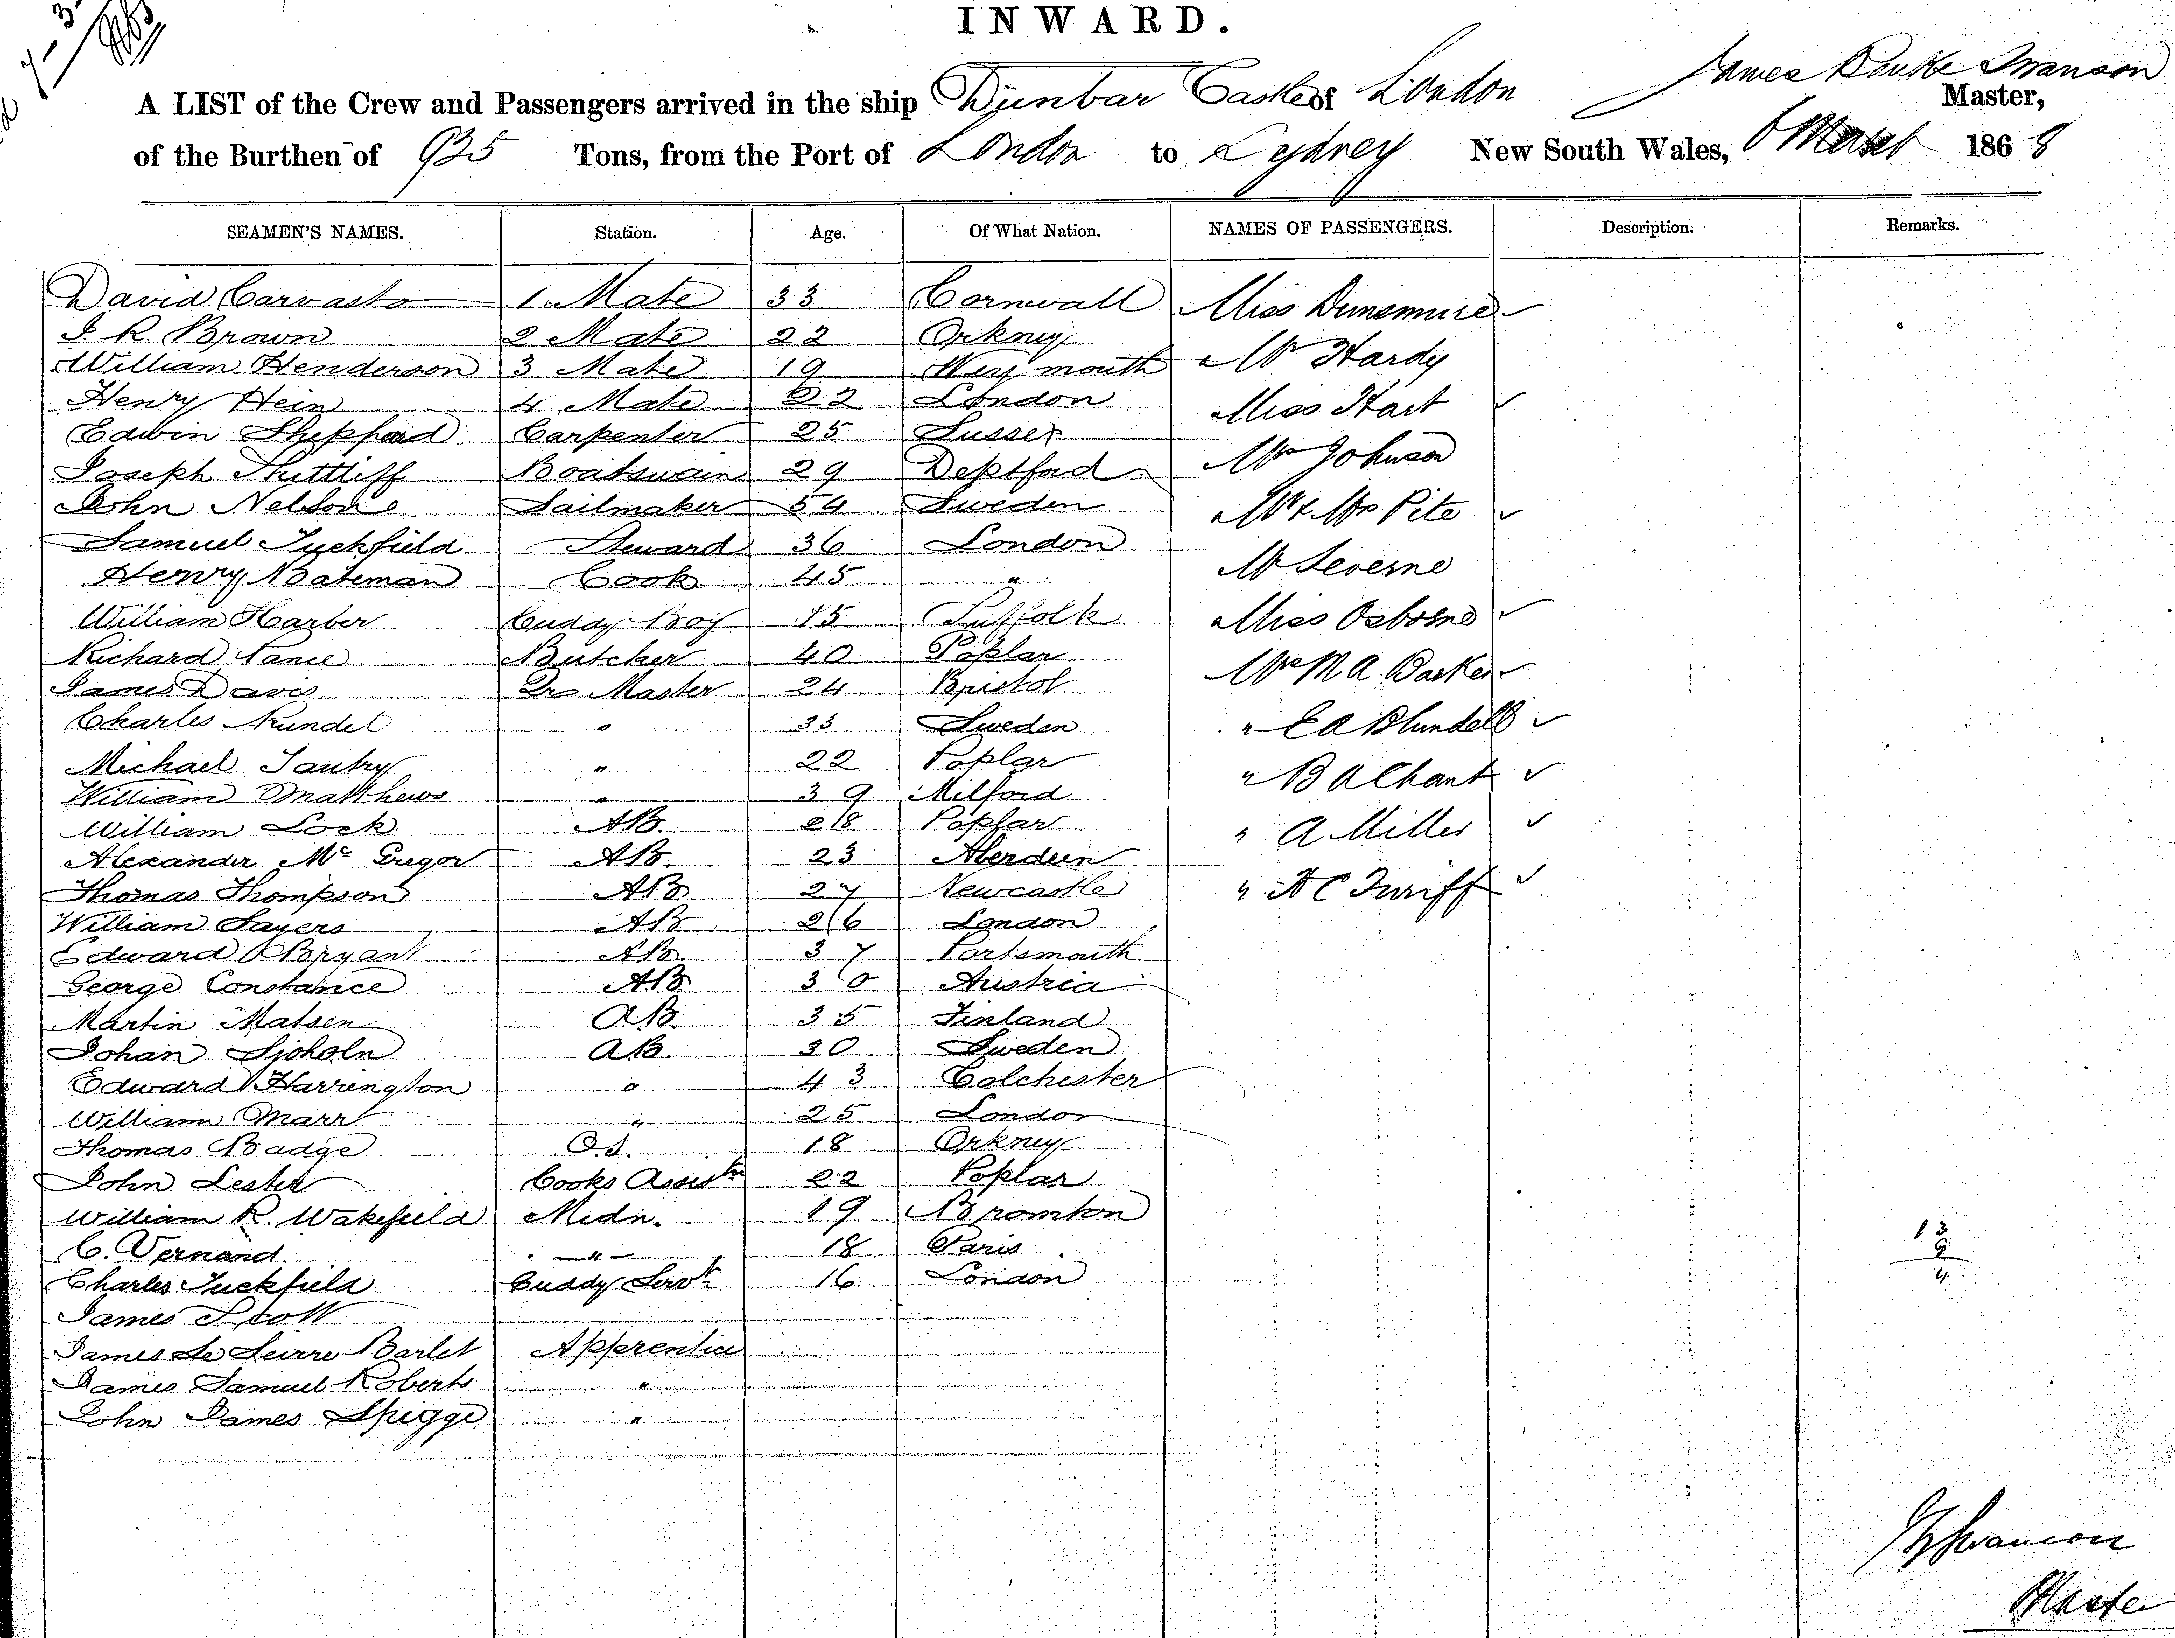 INWARD.
A LIST of the Crew and Passengers arrived in the ship Dunbar Castle of London James Banks Swanson Master,
of the Burthen of 925 Tons, from the Port of London to Sydney New South Wales, 6 March 1868
SEAMEN'S NAMES. Station. Age. Of What Nation. NAMES OF PASSENGERS. Description. Remarks.
David Carvasto 1 Mate 33 Cornwall Miss Dunsmure
J. R. Brown 2 Mate 22 Orkney
William Henderson 3 Mate 19 Weymouth Mr Hardy
Henry Hein 4 Mate 22 London Miss Hart
Edwin Sheppard Carpenter 25 Sussex
Joseph Shittliff Boatswain 29 Deptford Mr Johnson
John Nelson Sailmaker 54 Sweden Mr & Mrs Pite
Samuel Tuckfield Steward 36 London
Henry Bateman Cook 45 " Mr Severne
William Harber Cuddy Boy 15 Suffolk Miss Osborne
Richard Butcher 40 Poplar Mr M A Barker
James Davis Qr Master 24 Bristol
Charles Nundel " 33 Sweden " E A Blundell
Michael Tautry " 22 Poplar
William Matthews " 39 Milford " B A Chant
William Lock AB 28 Poplar " A Miller
Alexander Mc Gregor AB 23 Aberdeen
Thomas Thompson AB 27 Newcastle " A C Turiff
William Sayers AB 26 London
Edward Bryant AB 37 Portsmouth
George Constance AB 30 Austria
Martin Matsen AB 35 Finland
Johan Sjoholn AB 30 Sweden
Edward Harrington " 43 Colchester
William Marr " 25 London
Thomas Badge O.S. 18 Orkney
John Lester Cooks Assistn 22 Poplar
William R. Wakefield Midn. 19 Bromton
C. Vernand " 18 Paris
Charles Tuckfield Cuddy Servt 16 London
James Scott
James Barlet Apprentice
James Samuel Roberts "
John James Spigge "
JBSwanson
Master